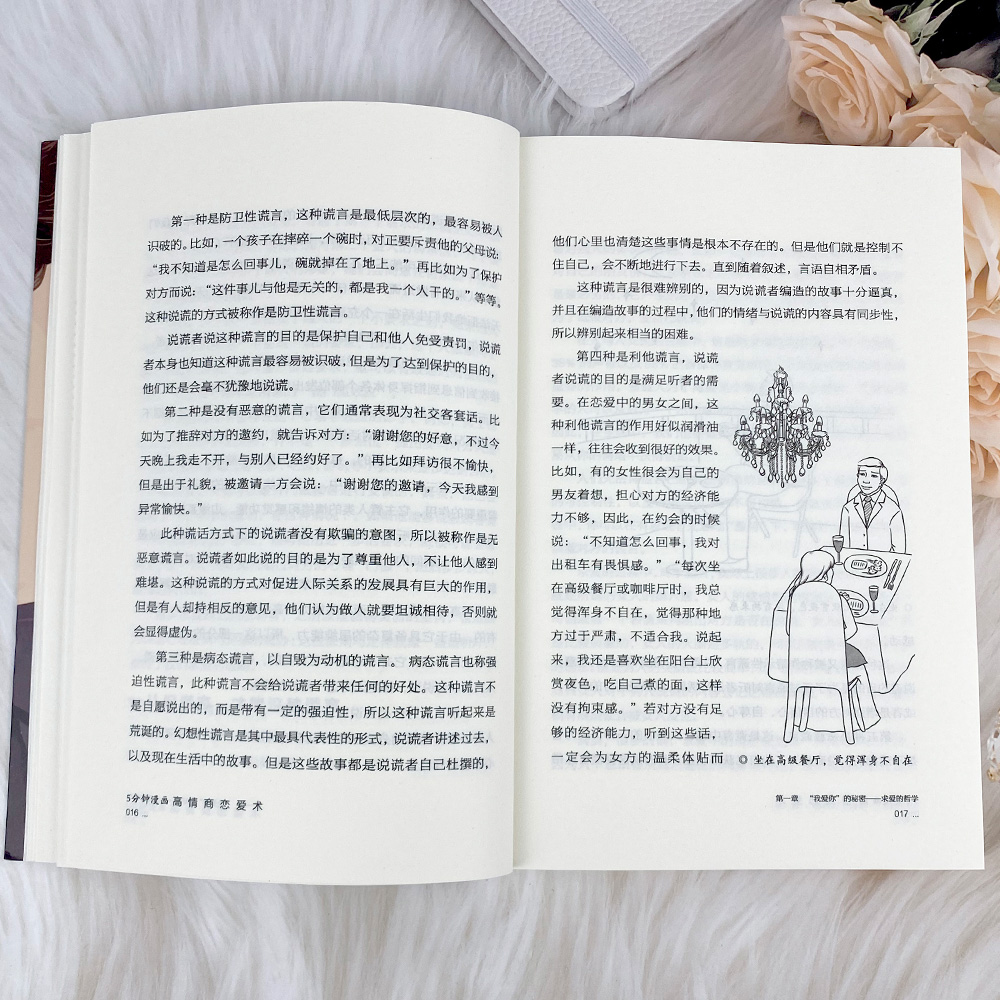 第一种是防卫性谎言，这种谎言是最低层次的，最容易被人
识破的。比如，一个孩子在摔碎一个碗时，对正要斥责他的父母说：
“我不知道是怎么回事儿，碗就掉在了地上。”再比如为了保护
对方而说：“这件事儿与他是无关的，都是我一个人干的。”等等。
这种说谎的方式被称作是防卫性谎言。
说谎者说这种谎言的目的是保护自己和他人免受责罚，说谎
者本身也知道这种谎言最容易被识破，但是为了达到保护的目的，
他们还是会毫不犹豫地说谎。
第二种是没有恶意的谎言，它们通常表现为社交客套话。比
如为了推辞对方的邀约，就告诉对方：“谢谢您的好意，不过今
天晚上我走不开，与别人已经约好了。”再比如拜访很不愉快，
但是出于礼貌，被邀请一方会说：“谢谢您的邀请，今天我感到
异常愉快。”
此种谎话方式下的说谎者没有欺骗的意图，所以被称作是无
恶意谎言。说谎者如此说的目的是为了尊重他人，不让他人感到
难堪。这种说谎的方式对促进人际关系的发展具有巨大的作用，
但是有人却持相反的意见，他们认为做人就要坦诚相待，否则就
会显得虚伪。
第三种是病态谎言，以自毁为动机的谎言。病态谎言也称强
迫性谎言，此种谎言不会给说谎者带来任何的好处。这种谎言不
是自愿说出的，而是带有一定的强迫性，所以这种谎言听起来是
荒诞的。幻想性谎言是其中最具代表性的形式，说谎者讲述过去，
以及现在生活中的故事。但是这些故事都是说谎者自己杜撰的，
5分钟漫画高情商恋爱术
016 ...
他们心里也清楚这些事情是根本不存在的。但是他们就是控制不
住自己，会不断地进行下去。直到随着叙述，言语自相矛盾。
这种谎言是很难辨别的，因为说谎者编造的故事十分逼真，
并且在编造故事的过程中，他们的情绪与说谎的内容具有同步性，
所以辨别起来相当的困难。
第四种是利他谎言，说谎
者说谎的目的是满足听者的需
要。在恋爱中的男女之间，这
种利他谎言的作用好似润滑油
一样，往往会收到很好的效果。
比如，有的女性很会为自己的
男友着想，担心对方的经济能
力不够，因此，在约会的时候
说：“不知道怎么回事，我对
出租车有畏惧感。”“每次坐
在高级餐厅或咖啡厅时，我总
觉得浑身不自在，觉得那种地
方过于严肃，不适合我。说起
来，我还是喜欢坐在阳台上欣
赏夜色，吃自己煮的面，这样
没有拘束感。”若对方没有足
够的经济能力，听到这些话，
一定会为女方的温柔体贴而
◎ 坐在高级餐厅，觉得浑身不自在
第一章 “我爱你”的秘密——求爱的哲学
017 ...